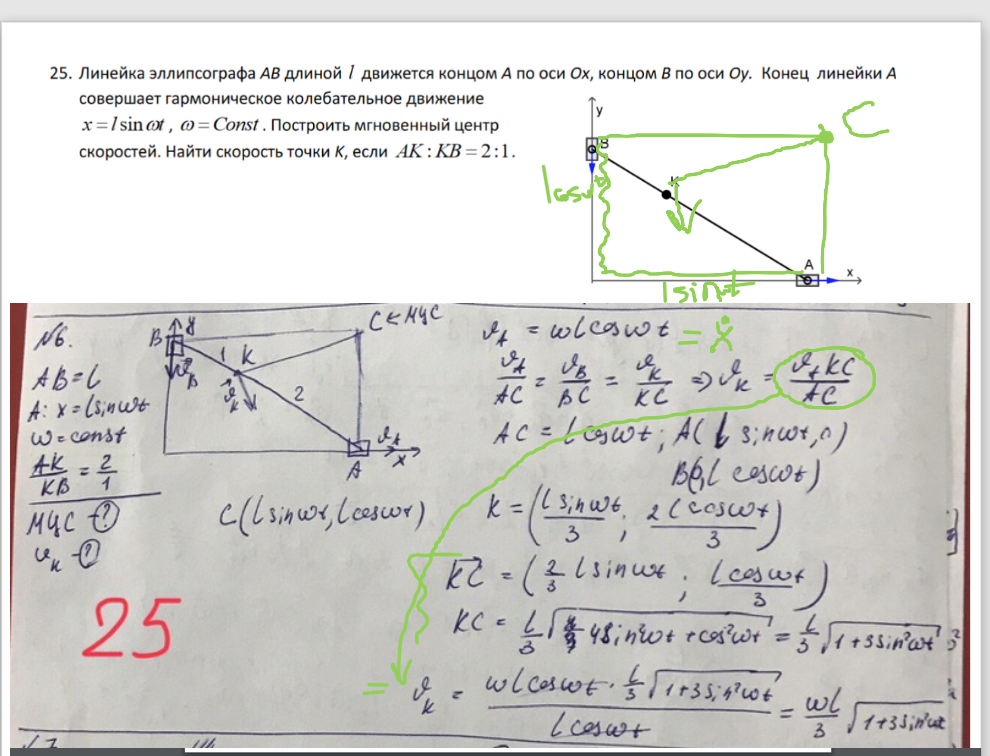 25. Линейка эллипсографа AB длиной l движется концом A по оси Ox, концом B по оси Oy. Конец линейки A
совершает гармоническое колебательное движение
x = l sin ωt , ω = Const . Построить мгновенный центр
скоростей. Найти скорость точки K, если AK : KB = 2 : 1.
y
B
K
A
x
C
l cosωt
l sinωt
№6.
AB = l
A: x = l sinωt
ω = const
AK/KB = 2/1
МЦС - ?
v_K - ?
25
B
y
1
K
2
v_B
v_K
A
v_A
x
C ← МЦС
C(l sinωt, l cosωt)
v_A = ωl cosωt = ẋ
v_A/AC = v_B/BC = v_K/KC => v_K = v_A KC/AC
AC = l cosωt ; A(l sinωt, 0)
B(0, l cosωt)
K = (l sinωt/3 ; 2l cosωt/3)
KC = (2/3 l sinωt ; l cosωt/3)
KC = l/3 √(4sin²ωt + cos²ωt) = l/3 √(1+3sin²ωt)
= v_K = ωl cosωt · l/3 √(1+3sin²ωt) / l cosωt = ωl/3 √(1+3sin²ωt)